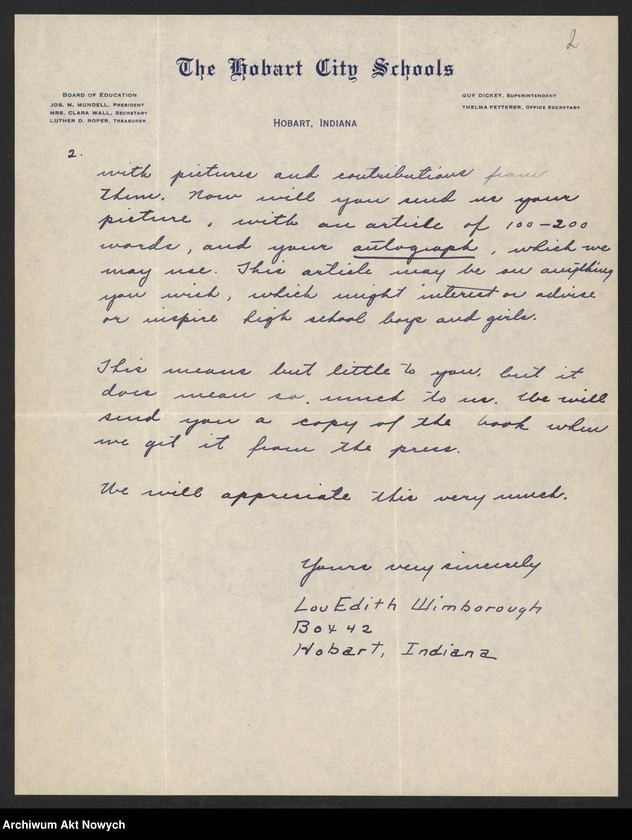 2
The Hobart City Schools
Board of Education
Jos. M. Mundell, President
Mrs. Clara Wall, Secretary
Luther D. Roper, Treasurer
Guy Dickey, Superintendent
Thelma Fetterer, Office Secretary
Hobart, Indiana
2.
with pictures and contributions from
them. Now will you send us your
picture, with an article of 100-200
words, and your autograph, which we
may use. This article may be on anything
you wish, which might interest or advise
or inspire high school boys and girls.
This means but little to you, but it
does mean so much to us. We will
send you a copy of the book when
we get it from the press.
We will appresiate this very much.
Yours very sincerely
Lou Edith Wimborough
Box 42
Hobart, Indiana
Archiwum Akt Nowych